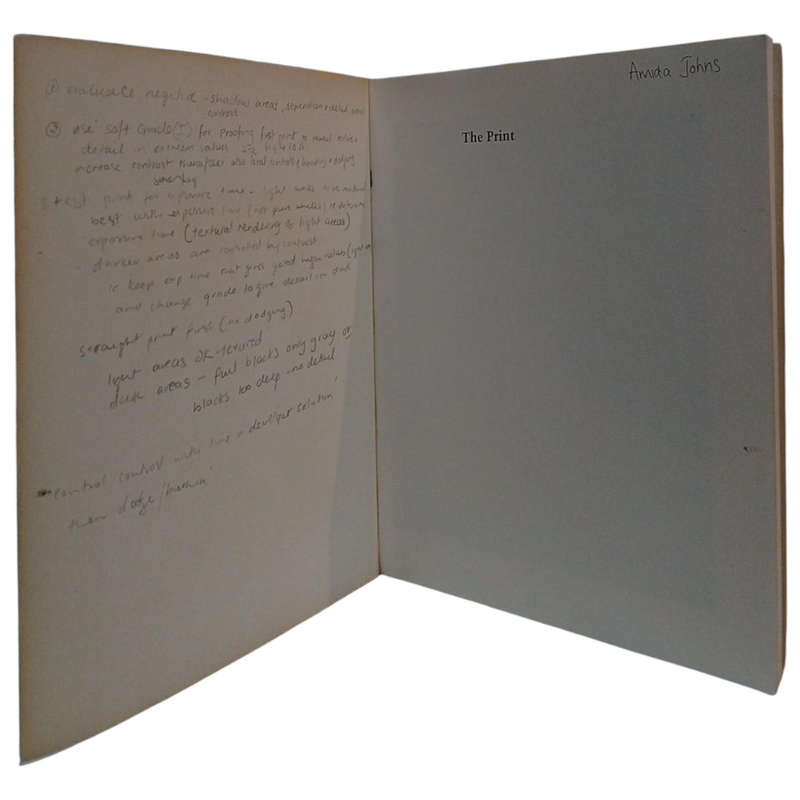 ① evaluate negative - shadow areas, separation & detail,
contrast
② use soft Grade (1) for proofing first print to reveal
detail in extreme values
increase contrast thereafter also local controls (burning & dodging
test print for exposure time - light
best with exposure time (not pure whites)
exposure time (textural rendering of light areas)
darker areas are controlled by contrast
ie keep exp time that gives good high values (light
and change grade to give detail in dark
straight print first (no dodging)
light areas OK - textured
dark areas - full blacks only gray or
blacks too deep - no detail
control contrast with time & developer solution
then dodge/burn in
Amida Johns
The Print